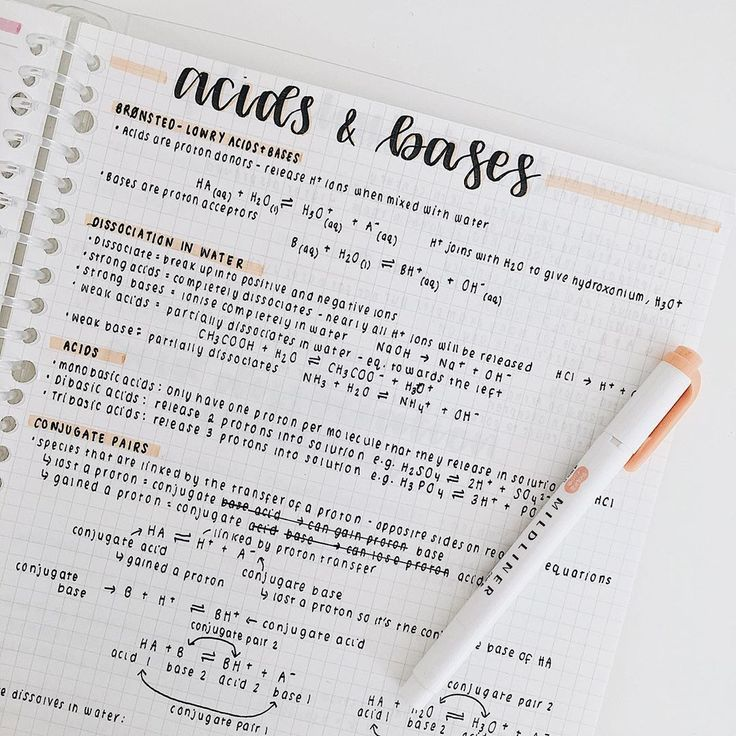 acids & bases
BRØNSTED-LOWRY ACIDS+BASES
• Acids are proton donors - release H⁺ ions when mixed with water
HA(aq) + H₂O(l) ⇌ H₃O⁺(aq) + A⁻(aq) H⁺ joins with H₂O to give hydroxonium, H₃O⁺
• Bases are proton acceptors
B(aq) + H₂O(l) ⇌ BH⁺(aq) + OH⁻(aq)
DISSOCIATION IN WATER
• Dissociate = break up into positive and negative ions
• strong acids = completely dissociates - nearly all H⁺ ions will be released HCl → H⁺ +
• strong bases = ionise completely in water NaOH → Na⁺ + OH⁻
• weak acids = partially dissociates in water - eq. towards the left
CH₃COOH + H₂O ⇌ CH₃COO⁻ + H₃O⁺
• weak base: partially dissociates NH₃ + H₂O ⇌ NH₄⁺ + OH⁻
ACIDS
• monobasic acids: only have one proton per molecule that they release in HCl
• Dibasic acids: release 2 protons into solution e.g. H₂SO₄ ⇌ 2H⁺ + SO₄²⁻
• Tribasic acids: release 3 protons into solution e.g. H₃PO₄ ⇌ 3H⁺ +
CONJUGATE PAIRS
• species that are linked by the transfer of a proton - opposite sides on equations
↳ lost a proton = conjugate base acid → can gain proton base
↳ gained a proton = conjugate acid base → can lose proton
conjugate acid → HA ⇌ H⁺ + A⁻
linked by proton transfer
↳ gained a proton
conjugate base
↳ lost a proton so it's the base of HA
conjugate base → B + H⁺ ⇌ BH⁺ ← conjugate acid
conjugate pair 2
HA + B ⇌ BH⁺ + A⁻
acid 1 base 2 acid 2 base 1
conjugate pair 1
conjugate pair 2
HA + H₂O ⇌ H₃O⁺ +
acid 1 base 2 acid 2
dissolves in water:
MILDLINER